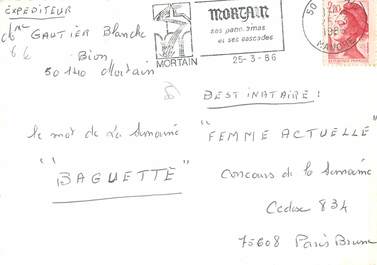 EXPEDITEUR
GAUTIER Blanche
Bion
50140 Mortain
MORTAIN
MORTAIN
ses panoramas
et ses cascades
25-3-86
50
MANCHE
2,20
DESTINATAIRE:
le mot de la semaine
"BAGUETTE"
"FEMME ACTUELLE"
Concours de la Semaine
Cedex 834
75608 Paris Brune